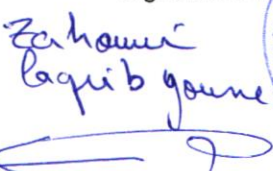 Zahouni
laquib youne